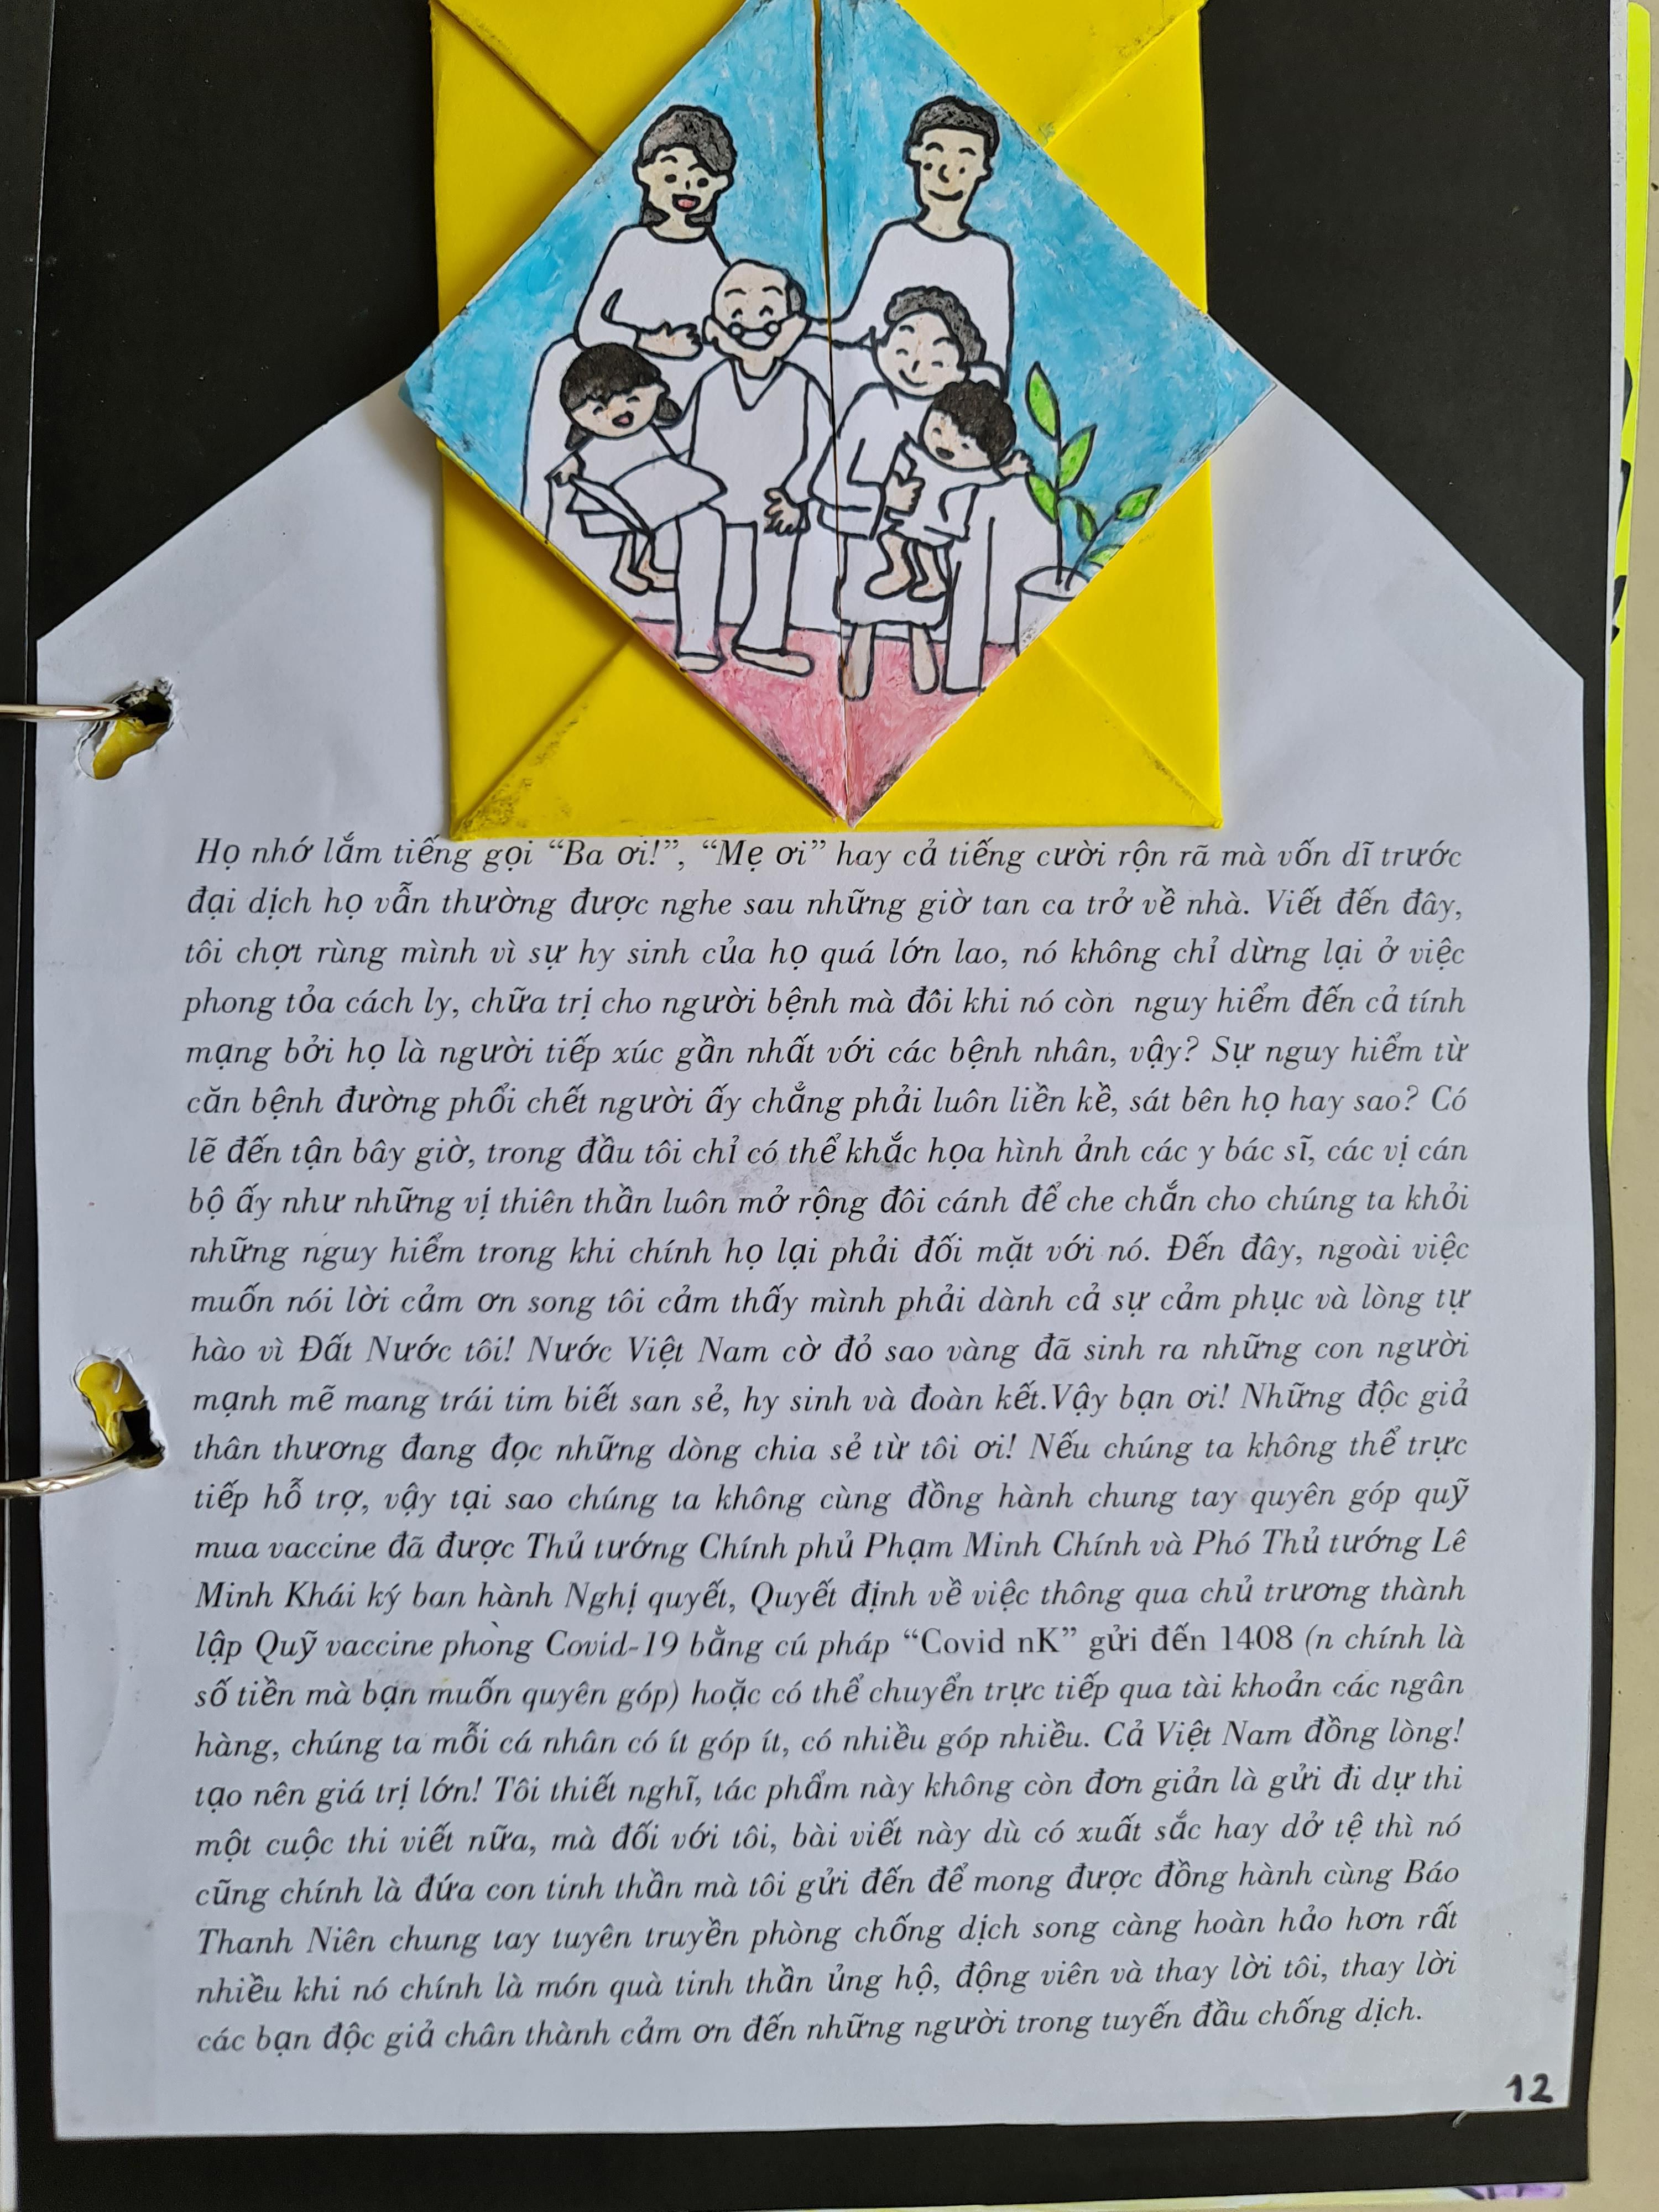 Họ nhớ lắm tiếng gọi “Ba ơi!”, “Mẹ ơi” hay cả tiếng cười rộn rã mà vốn dĩ trước
đại dịch họ vẫn thường được nghe sau những giờ tan ca trở về nhà. Viết đến đây,
tôi chợt rùng mình vì sự hy sinh của họ quá lớn lao, nó không chỉ dừng lại ở việc
phong tỏa cách ly, chữa trị cho người bệnh mà đôi khi nó còn nguy hiểm đến cả tính
mạng bởi họ là người tiếp xúc gần nhất với các bệnh nhân, vậy? Sự nguy hiểm từ
căn bệnh đường phổi chết người ấy chẳng phải luôn liền kề, sát bên họ hay sao? Có
lẽ đến tận bây giờ, trong đầu tôi chỉ có thể khắc họa hình ảnh các y bác sĩ, các vị cán
bộ ấy như những vị thiên thần luôn mở rộng đôi cánh để che chắn cho chúng ta khỏi
những nguy hiểm trong khi chính họ lại phải đối mặt với nó. Đến đây, ngoài việc
muốn nói lời cảm ơn song tôi cảm thấy mình phải dành cả sự cảm phục và lòng tự
hào vì Đất Nước tôi! Nước Việt Nam cờ đỏ sao vàng đã sinh ra những con người
mạnh mẽ mang trái tim biết san sẻ, hy sinh và đoàn kết.Vậy bạn ơi! Những độc giả
thân thương đang đọc những dòng chia sẻ từ tôi ơi! Nếu chúng ta không thể trực
tiếp hỗ trợ, vậy tại sao chúng ta không cùng đồng hành chung tay quyên góp quỹ
mua vaccine đã được Thủ tướng Chính phủ Phạm Minh Chính và Phó Thủ tướng Lê
Minh Khái ký ban hành Nghị quyết, Quyết định về việc thông qua chủ trương thành
lập Quỹ vaccine phòng Covid-19 bằng cú pháp “Covid nK” gửi đến 1408 (n chính là
số tiền mà bạn muốn quyên góp) hoặc có thể chuyển trực tiếp qua tài khoản các ngân
hàng, chúng ta mỗi cá nhân có ít góp ít, có nhiều góp nhiều. Cả Việt Nam đồng lòng!
tạo nên giá trị lớn! Tôi thiết nghĩ, tác phẩm này không còn đơn giản là gửi đi dự thi
một cuộc thi viết nữa, mà đối với tôi, bài viết này dù có xuất sắc hay dở tệ thì nó
cũng chính là đứa con tinh thần mà tôi gửi đến để mong được đồng hành cùng Báo
Thanh Niên chung tay tuyên truyền phòng chống dịch song càng hoàn hảo hơn rất
nhiều khi nó chính là món quà tinh thần ủng hộ, động viên và thay lời tôi, thay lời
các bạn độc giả chân thành cảm ơn đến những người trong tuyến đầu chống dịch.
12